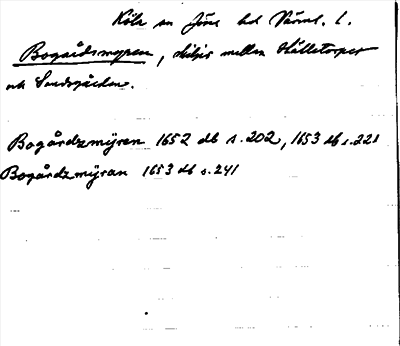 Köla sn Jöse hd Värml. l.
Bogårdsmyren, skiljer mellan Hälletorpet
och Sandsgården.
Bogårdzmÿren 1652 db s. 202, 1653 db s. 221
Bogårdzmÿran 1653 db s. 241